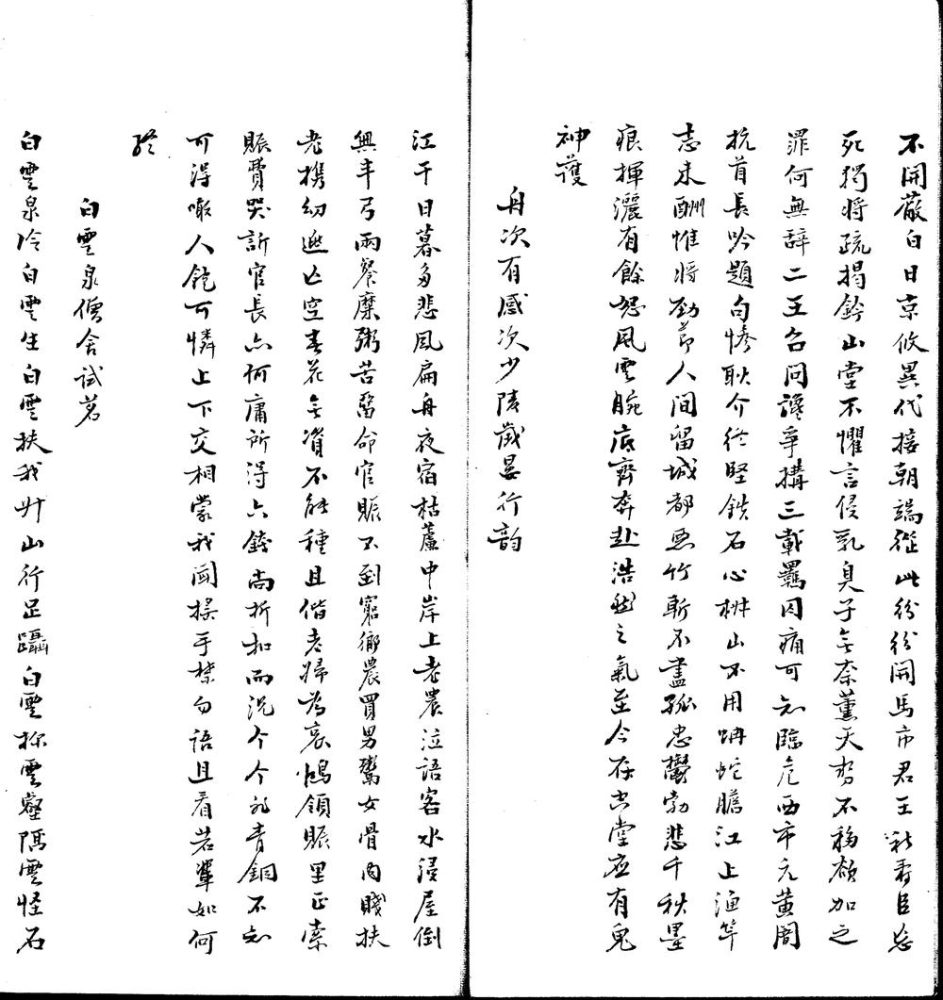 不開嚴白日哀攸異代接朝端從此紛紛開馬市君王秋肅臣忘
死獨將疏揭鈐山堂不懼言侵乳臭子無奈薰天勢不移顏加之
罪何無辭二王召問讒爭搆三載羈囚痛可知臨危西市元黃周
抗首長吟題句慘耿介終堅鉄石心椒山不用蚺蛇膽江上漁竿
志未酬惟將勁節人間留城都惡竹斬不盡孤忠鬱勃悲千秋墨
痕揮灑有餘怒風雲腕底齊奔赴浩然之氣至今存虛堂應有鬼
神護
舟次有感次少陵歲晏行韵
江干日暮多悲風扁舟夜宿枯蘆中岸上老農泣語客水浸屋倒
無半弓兩餐糜粥苦留命官賑不到窮鄉農買男鬻女骨肉賤扶
老携幼逃亡空春花無資不能種且偕老婦為哀鴻領賑里正索
賑費哭訴官長亦何庸所得六錢尚折扣而況个个非青銅不知
可得噉人飽可憐上下交相蒙我聞搖手禁勿語且看若輩如何
終
白雲泉僧舍試茗
白雲泉冷白雲生白雲扶我升山行足躡白雲探雲壑隔雲怪石